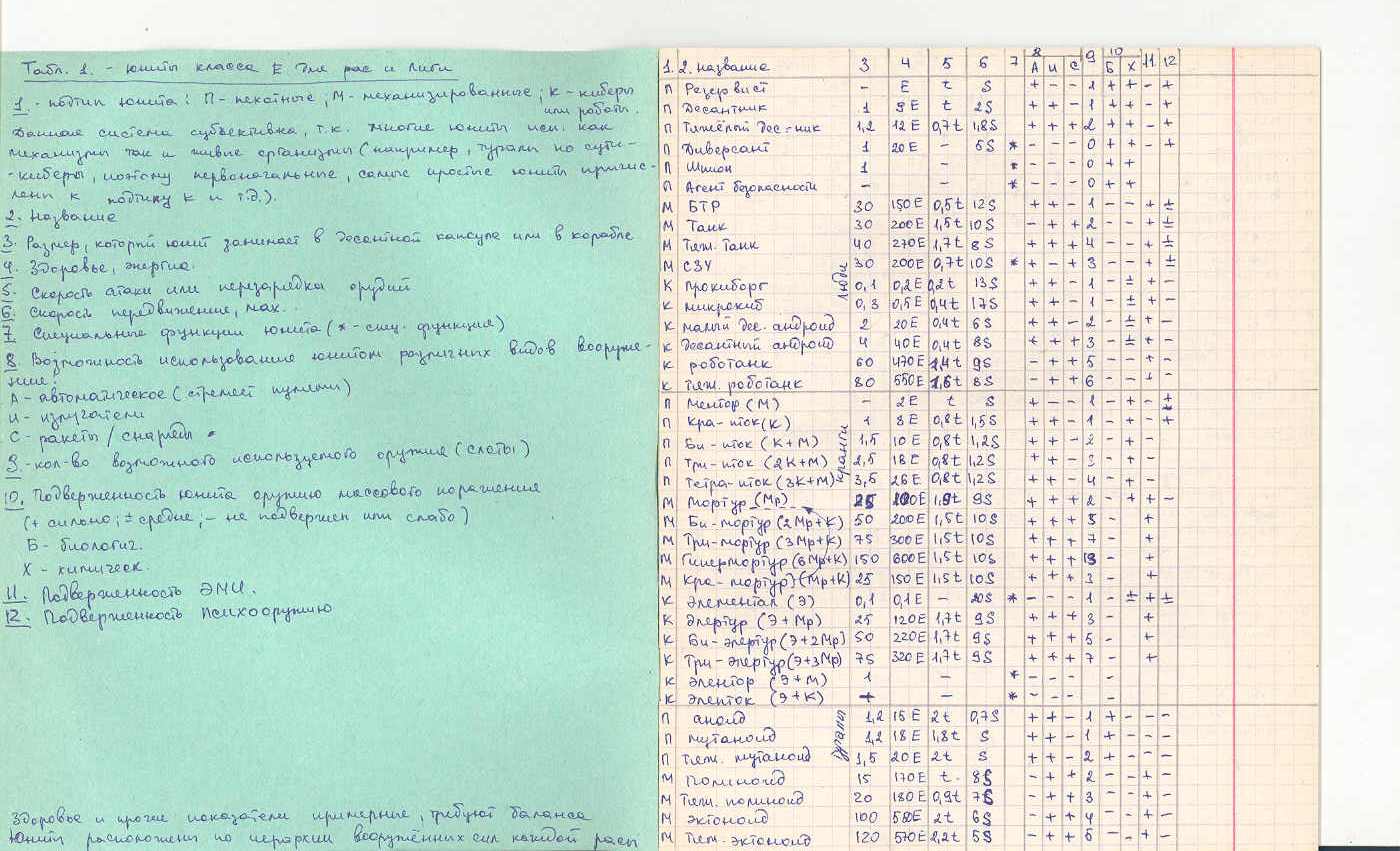 Табл. 1. - юниты класса Е для рас и Лиги
1. - подтип юнита: П - пехотные; М - механизированные; К - киберы
или роботы.
Данная система субъективна, т.к. многие юниты исп. как
механизмы так и живые организмы (например, туралы по сути -
- киберы, поэтому первоначальные, самые простые юниты причис-
лены к подтипу К и т.д.).
2. Название
3. Размер, который юнит занимает в десантной капсуле или в корабле
4. Здоровье, энергия.
5. Скорость атаки или перезарядка орудий
6. Скорость передвижения, мах.
7. Специальные функции юнита (* - спец. функция)
8. Возможность использование юнитом различных видов вооруже-
ния:
А - автоматическое (стреляет пулями)
И - излучатели
С - ракеты / снаряды
9. - кол-во возможного используемого оружия (слоты)
10. Подверженность юнита оружию массового поражения
(+ сильно; ± средне; - не подвержен или слабо)
Б - биологич.
Х - химическ.
11. Подверженность ЭМИ.
12. Подверженность психооружию
Здоровье и прочие показатели примерные, требуют баланса
Юниты расположены по иерархии вооружённых сил каждой расы
1. 2. название 3 4 5 6 7 8 А И С 9 10 Б Х 11 12
П Резервист - Е t S + - - 1 + + - +
П Десантник 1 9Е t 2S + + - 1 + + - +
П Тяжёлый дес-ник 1,2 12Е 0,7t 1,8S + + + 2 + + - +
П Диверсант 1 20Е - 5S * - - - 0 + + - +
П Шпион 1 - * - - - 0 + +
П Агент безопасности - - * - - - 0 + +
М БТР 30 150Е 0,5t 12S + + - 1 - - + ±
М Танк 30 200Е 1,5t 10S - + + 2 - - + ±
М Тяж. танк 40 270Е 1,7t 8S + + + 4 - - + ±
М СЗУ 30 200Е 0,7t 10S * + - + 3 - - + ±
люди
К Прокиборг 0,1 0,2Е 0,2t 13S + + - 1 - ± + -
К микрокиб 0,3 0,5Е 0,4t 17S + + - 1 - ± + -
К малый дес. андроид 2 20Е 0,4t 6S + + - 2 - ± + -
К Десантный андроид 4 40Е 0,4t 8S + + + 3 - ± + -
К роботанк 60 470Е 1,4t 9S - + + 5 - - + -
К тяж. роботанк 80 550Е 1,6t 8S - + + 6 - - + -
П Ментор (М) - 2Е t S + - - 1 - + - ±
П Кра-иток (К) 1 8Е 0,8t 1,5S + + - 1 - + - +
П Би-иток (К+М) 1,5 10Е 0,8t 1,2S + + - 2 - + -
кранги
П Три-иток (2К+М) 2,5 18Е 0,8t 1,2S + + - 3 - + -
П Тетра-иток (3К+М) 3,5 26Е 0,8t 1,2S + + - 4 - + -
М Мортур (Мр) 25 100Е 1,9t 9S + + + 2 - + + -
М Би-мортур (2Мр+К) 50 200Е 1,5t 10S + + + 5 - +
М Три-мортур (3Мр+К) 75 300Е 1,5t 10S + + + 7 - +
М Гипермортур (6Мр+К) 150 600Е 1,5t 10S + + + 13 - +
М Кра-мортур (Мр+К) 25 150Е 1,5t 10S + + + 3 - +
К Элементал (Э) 0,1 0,1Е - 20S * - - - 1 - ± + ±
К Элертур (Э+Мр) 25 120Е 1,7t 9S + + + 3 - +
К Би-элертур (Э+2Мр) 50 220Е 1,7t 9S + + + 5 - +
К Три-элертур (Э+3Мр) 75 320Е 1,7t 9S + + + 7 - +
К Элентор (Э+М) 1 - * - - - -
К Эленток (Э+К) + - * - - - -
туралы
П аноид 1,2 15Е 2t 0,7S + + - 1 + - - -
П мутаноид 1,2 18Е 1,8t S + + - 1 + - - -
П тяж. мутаноид 1,5 20Е 2t S + + - 2 + - - -
М Полиноид 15 170Е t. 8S - + + 2 - - + -
М Тяж. полиноид 20 180Е 0,9t 7S - + + 3 - - + -
М Эктоноид 100 550Е 2t 6S - + + 4 - - + -
М Тяж. эктоноид 120 570Е 2,2t 5S - + + 5 - - + -